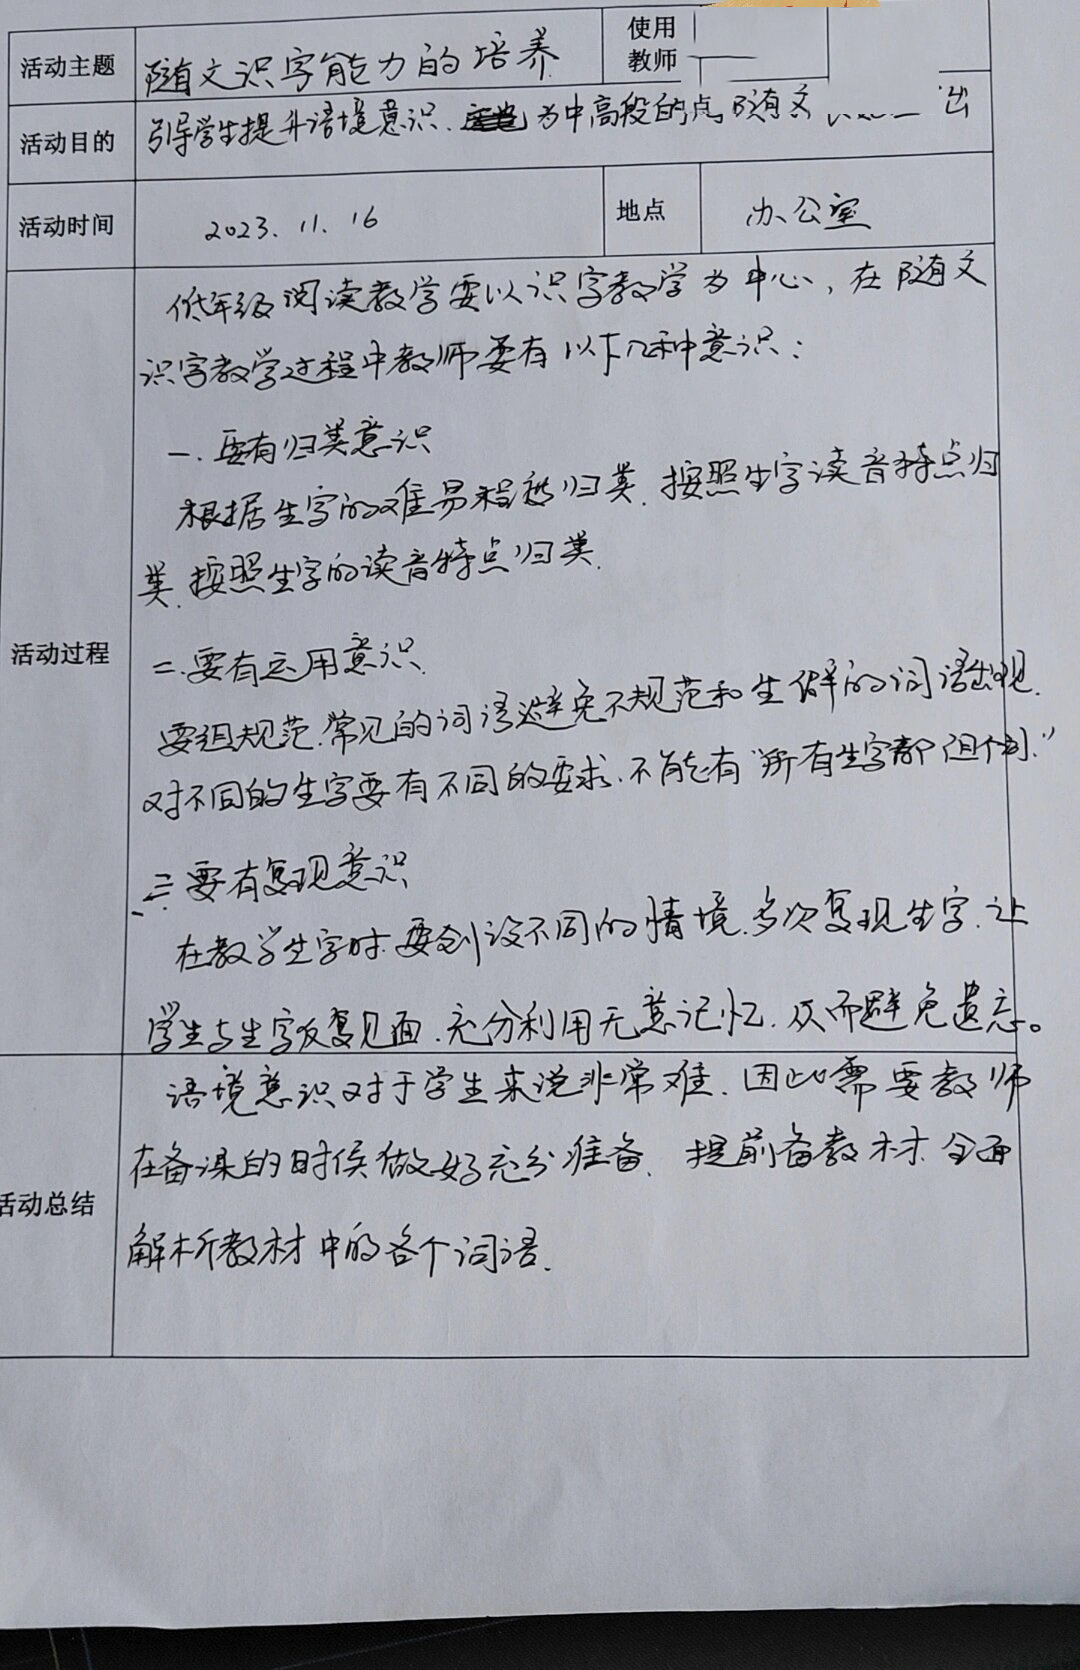 活动主题 随文识字能力的培养 使用教师
活动目的 引导学生提升语境意识、为中高段的点随文 出
活动时间 2023.11.16 地点 办公室
活动过程
低年级阅读教学要以识字教学为中心，在随文
识字教学过程中教师要有以下几种意识：
一.要有归类意识
根据生字的难易程度归类、按照生字读音特点归
类、按照生字的读音特点归类.
二.要有运用意识.
要组规范.常见的词语避免不规范和生僻的词语出现.
对不同的生字要有不同的要求.不能有“所有生字都组个词.”
三要有复现意识
在教学生字时.要创设不同的情境.多次复现生字.让
学生与生字反复见面.充分利用无意记忆.从而避免遗忘。
活动总结
语境意识对于学生来说非常难.因此需要教师
在备课的时候做好充分准备.提前备教材.全面
解析教材中的各个词语.